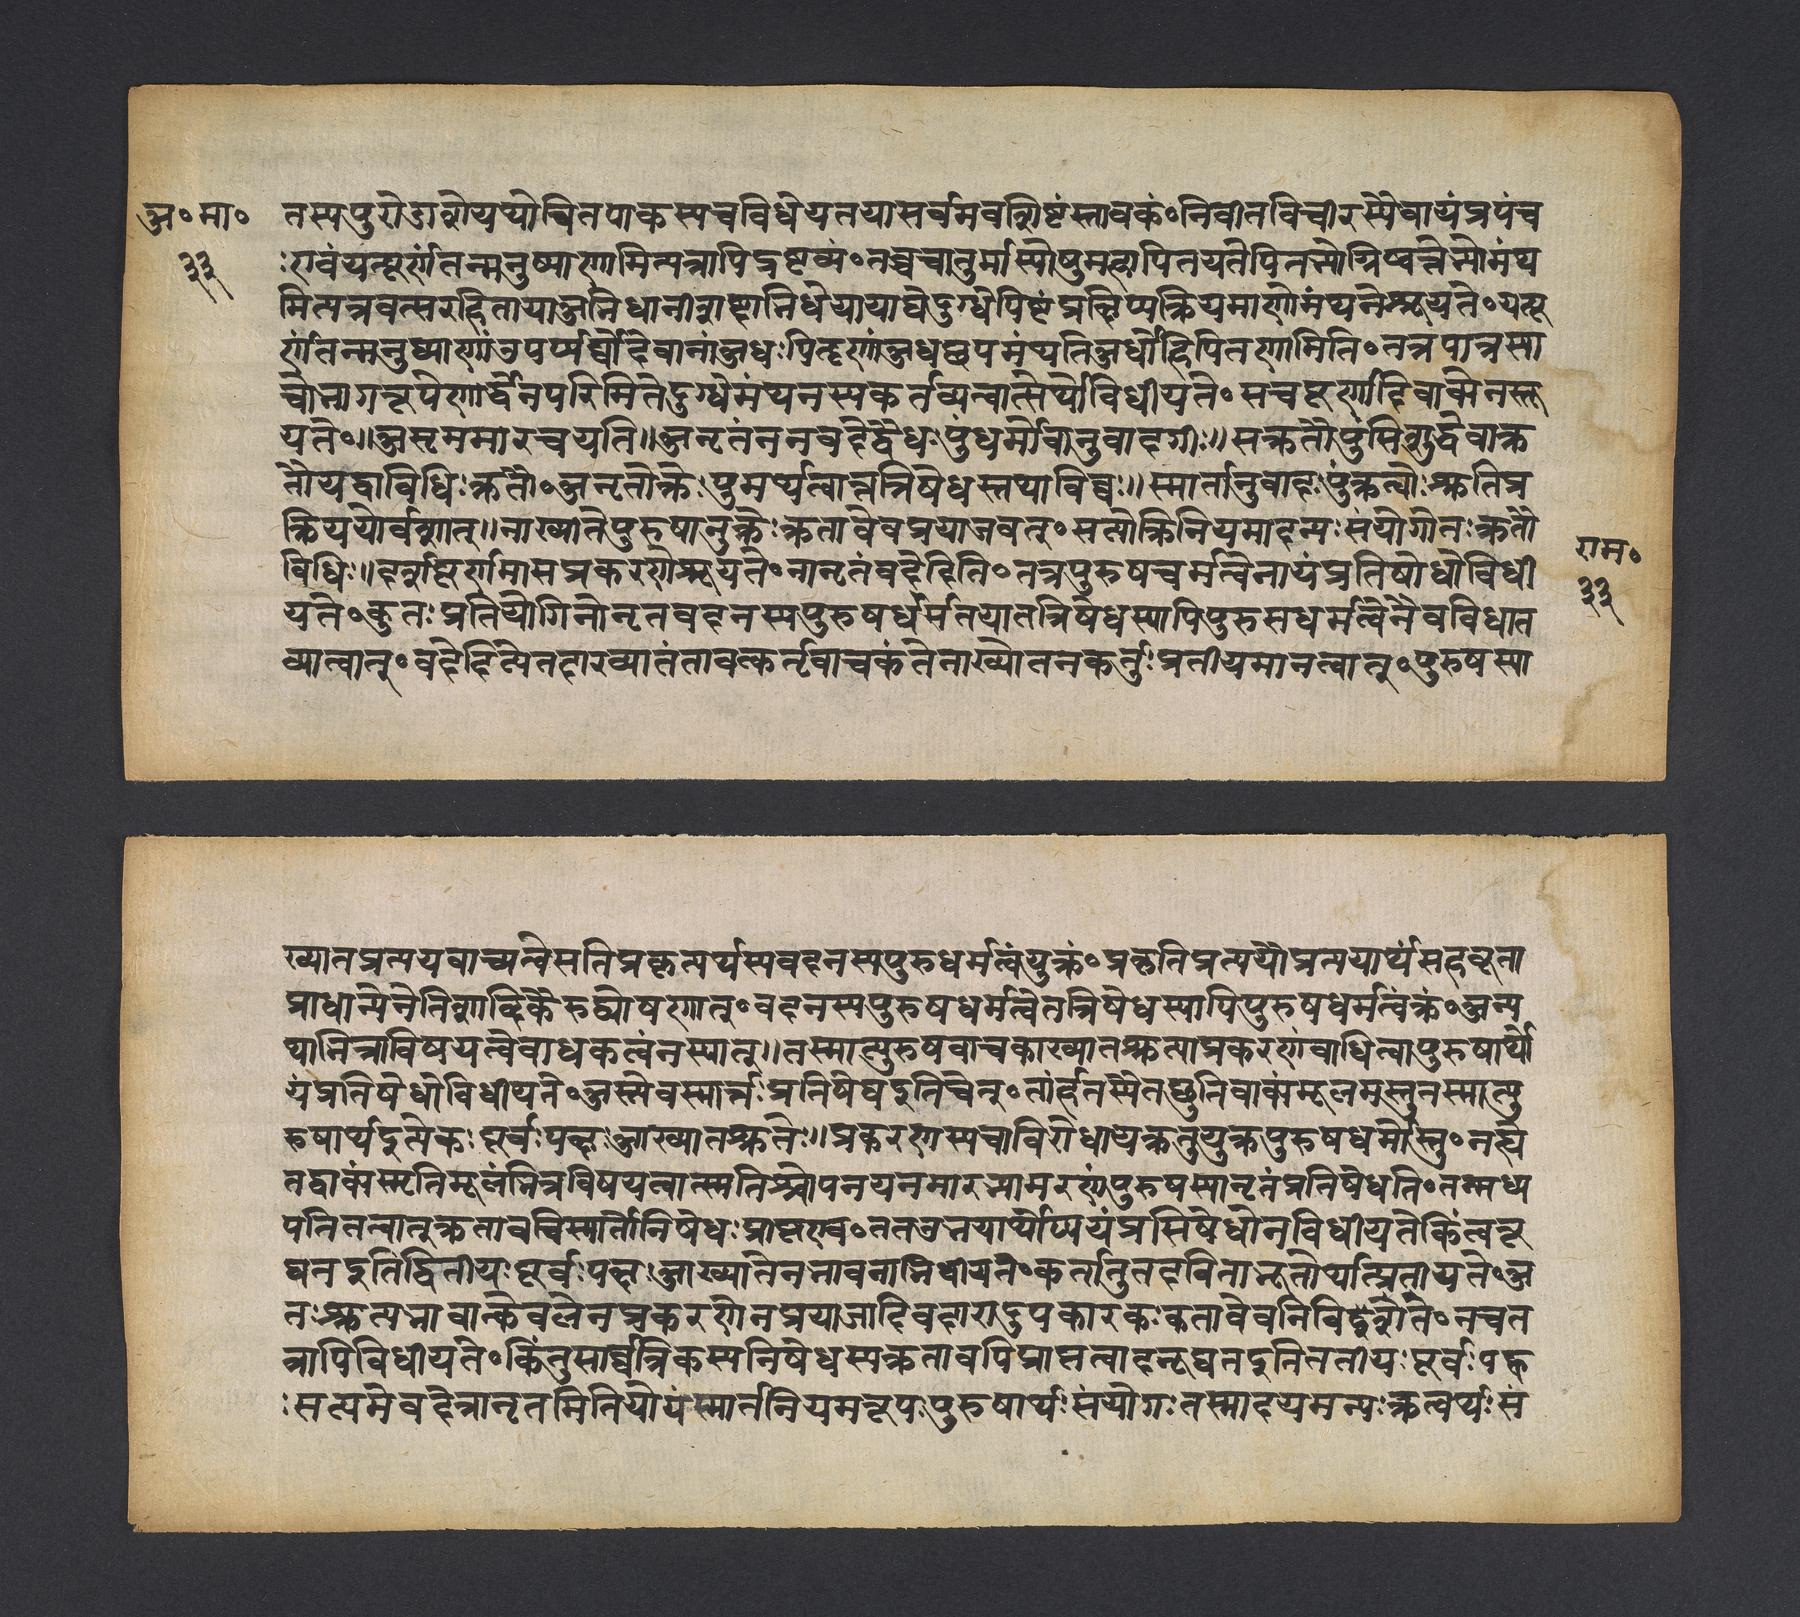 अ॰ मा॰
३३
तस्यपुरोडाशीययोचितपाकस्यचविधेयतयासर्वमवशिष्टंस्तावकं॰निवीतविचीरस्यैवायंप्रपंच
:एवंयत्पूर्णंतन्मनुष्याणामित्यत्रापिद्रष्टव्यं॰तच्चचातुर्मास्येषुमहापितृयज्ञेपितृभ्योग्निष्वात्तेभ्योमंथ
मित्यत्रवत्सरहितायाअभिधानीशब्दाभिधेयायाग्धेदुग्धेपिष्टंप्रक्षिप्यक्रियमाणेमंथनेश्रूयते॰यत्पू
र्णंतन्मनुष्याणांउपर्यर्धोदेवानांअधःपितॄणांअधउपमंथतिअर्धोहिपितॄणामिति॰तत्रपात्रसा
चोभागत्रूपेणार्द्धेनपरिमितेदुग्धेमंथनस्यकर्तव्यत्वात्सोर्थोविधीयते॰सचपूर्णादिवाक्येनस्तू
यते॰॥असृममारचयति॥अनृतंननवदेद्वैधःपुंधर्मोवानुवादगीः॥सक्रतौपुंसिशुद्धेवाक्र
तौयद्वाविधिःक्रतौ॰अनृतोक्तेःपुमर्थत्वात्तन्निषेधस्तथाविधः॥स्मार्तानुवादःपुंक्रत्वोःश्रुतिप्र
क्रिययोर्वशात्॥नाख्यातेपुरुषानुक्तेःक्रतावेवप्रयाजवत्॰सत्योक्तिनियमादन्यःसंयोगोनःक्रतौ
विधिः॥दर्शपूर्णमासप्रकरणेश्रूयते॰नानृतंवदेदिति॰तत्रपुरुषधर्मत्वेनायंप्रतिषोधोविधी
यते॰कुतःप्रतियोगिनोनृतवदनस्यपुरुषधर्मतयातन्निषेधस्यापिपुरुसधर्मत्वेनैवविधात
व्यात्वात्॰वदेदित्येतदाख्यातंतावत्कर्तृवाचकंतेनाख्यातेनकर्तुःप्रतीयमानत्वात्॰पुरुषस्या
राम॰
३३
ख्यातप्रत्ययवाच्यत्वेसतिप्रकृत्यर्थस्यवदनस्यपुरुधर्मत्वंयुक्तं॰प्रकृतिप्रत्ययौप्रत्ययार्थंसहब्रूतः
प्राधान्येनेतिशाब्दिकैरुद्घोषणात्॰वदनस्यपुरुषधर्मत्वेतन्निषेधस्यापिपुरुषधर्मत्वंक्तं॰अन्य
थाभिन्नाविषयत्वेबाधकत्वंनस्यात्॥तस्मात्पुरुषवाचकाख्यातश्रुत्याप्रकरणंबाधित्वापुरुषार्थो
यंप्रतिषेधोविधीयते॰अस्त्येवस्मार्त्तःप्रतिषेधइतिचेत्॰तर्हितस्यैतच्छ्रुतिवाक्यंमूलमस्तुतस्मात्पु
रुषार्थइत्येकःपूर्वःपक्षःआख्यातश्रुतेः॥प्रकरणस्यचाविरोधायक्रतुयुक्तपुरुषधर्मोस्तु॰नह्ये
तद्वाक्यंस्मृतिमूलंभिन्नविषयत्वात्स्मृतिश्चोपनयनमारभ्यामरणंपुरुषस्यानृतंप्रतिषेधति॰तन्मध्य
पतितत्वात्क्रतावपिस्मार्तोनिषेधःप्राप्तएव॰ततउभयार्थोप्ययंप्रतिषेधोनविधीयतेकिंत्वनू
द्यतइतिद्वितीयःपूर्वःपक्षःआख्यातेनभावनाभिधीयते॰कर्तातुतदविनाभूतोर्थात्प्रतीयते॰अ
तःश्रुत्यभावात्केवलेनप्रकरणेनप्रयाजादिवदारादुपकारकःक्रतावेवनिविशते॰नचत
त्रापिविधीयते॰किंतुसार्व्वत्रिकस्यनिषेधस्यक्रतावपिप्राप्तत्वादनूद्यतइतितृतीयःपूर्वःपक्ष
:सत्यमेववदेन्नानृतमितियोयंस्मार्तनियमत्रूपःपुरुषार्थःसंयोगःतस्मादयमन्यःक्रत्वर्थःसं